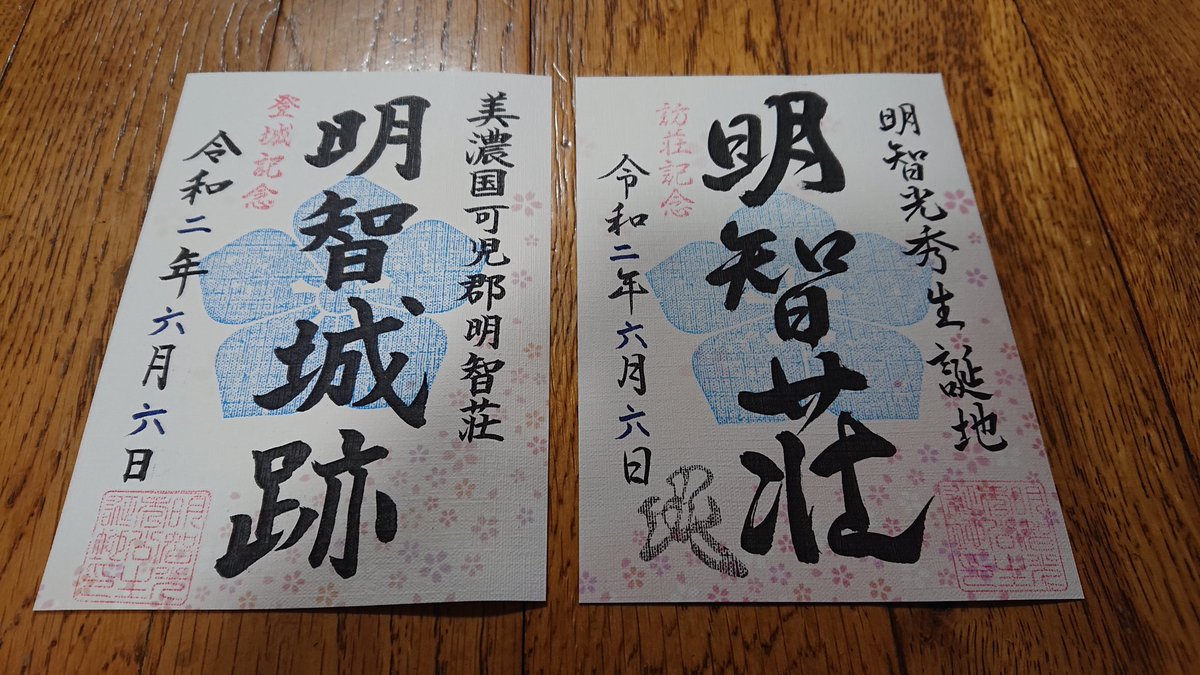 美濃国可児郡明智荘
明智城跡
登城記念
令和二年六月六日
明智光秀生誕地
明智荘
訪荘記念
令和二年六月六日